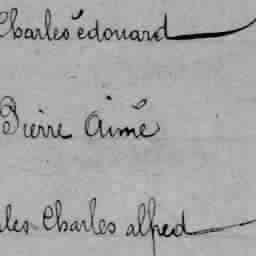 Charles édouard
Pierre Aimé
Charles alfred